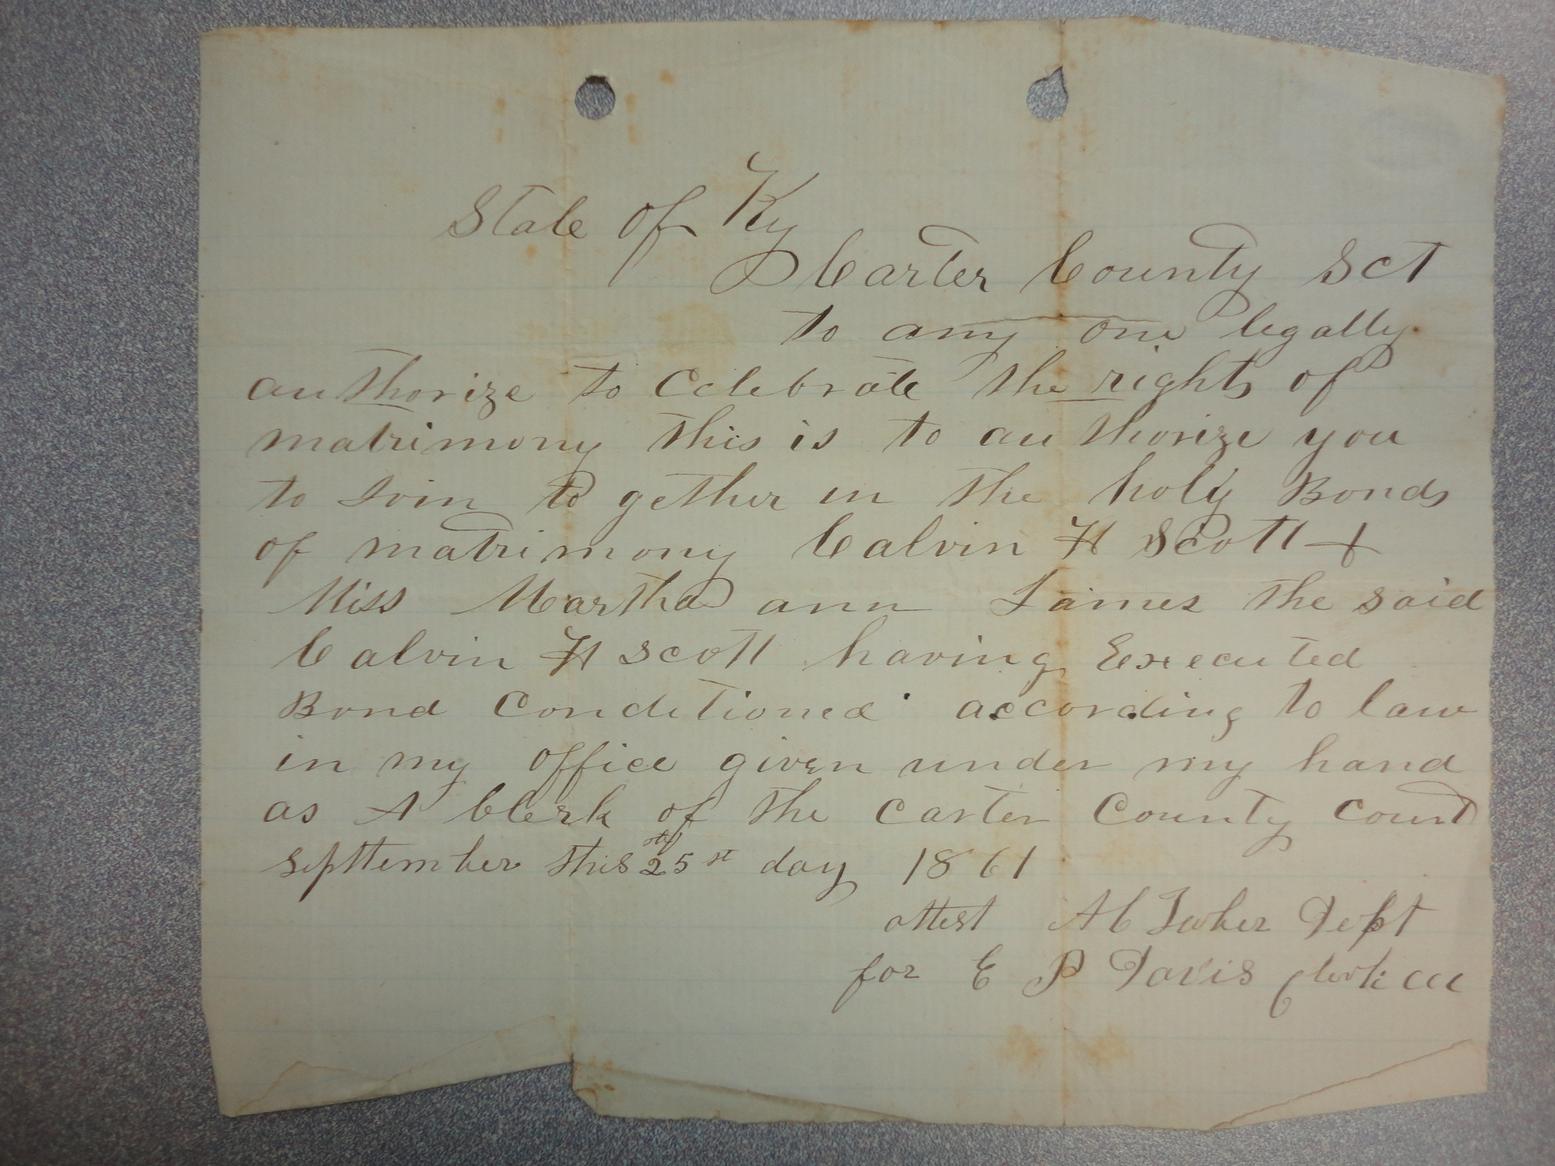 State of Ky
Carter County Sct
to any one legally
authorize to Celebrate the rights of
matrimony this is to authorize you
to Join to gether in the holy Bonds
of matrimony Calvin H Scott +
Miss Martha ann James the said
Calvin H Scott having Executed
Bond Conditioned according to law
in my office given under my hand
as A Clerk of the Carter County Court
September this 25st day 1861
attest A C Dept
for E P Davis Clerk CCC